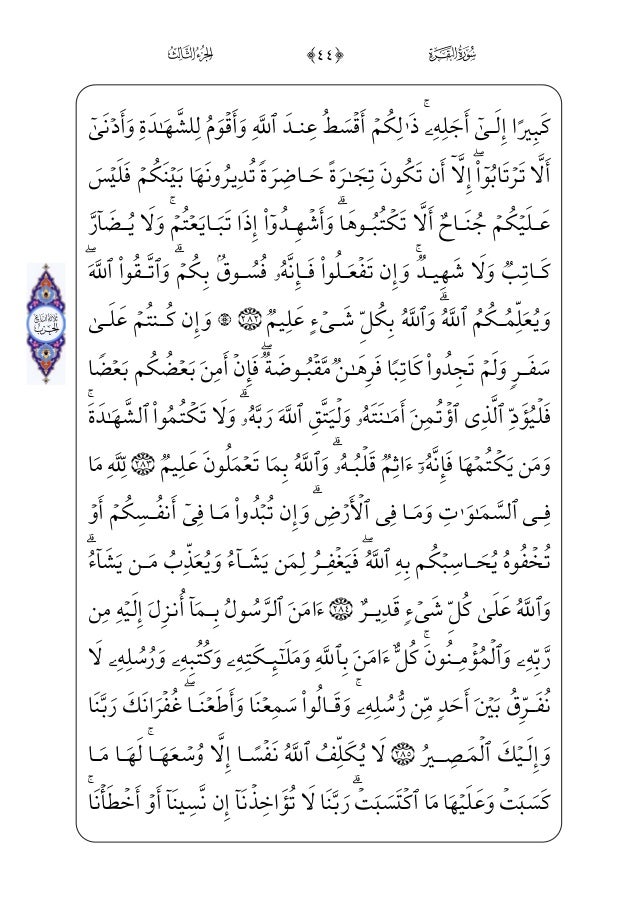 سُورَةُ البَقَرَةِ ﴿٤٤﴾ الجُزءُ الثَّالِثُ
كَبِيرًا إِلَىٰٓ أَجَلِهِۦۚ ذَٰلِكُمْ أَقْسَطُ عِندَ ٱللَّهِ وَأَقْوَمُ لِلشَّهَٰدَةِ وَأَدْنَىٰٓ
أَلَّا تَرْتَابُوٓا۟ۖ إِلَّآ أَن تَكُونَ تِجَٰرَةً حَاضِرَةً تُدِيرُونَهَا بَيْنَكُمْ فَلَيْسَ
عَلَيْكُمْ جُنَاحٌ أَلَّا تَكْتُبُوهَاۗ وَأَشْهِدُوٓا۟ إِذَا تَبَايَعْتُمْۚ وَلَا يُضَآرَّ
كَاتِبٌ وَلَا شَهِيدٌۚ وَإِن تَفْعَلُوا۟ فَإِنَّهُۥ فُسُوقٌۢ بِكُمْۗ وَٱتَّقُوا۟ ٱللَّهَۖ
وَيُعَلِّمُكُمُ ٱللَّهُۗ وَٱللَّهُ بِكُلِّ شَىْءٍ عَلِيمٌ ٢٨٢ ۞ وَإِن كُنتُمْ عَلَىٰ
سَفَرٍ وَلَمْ تَجِدُوا۟ كَاتِبًا فَرِهَٰنٌ مَّقْبُوضَةٌۖ فَإِنْ أَمِنَ بَعْضُكُم بَعْضًا
فَلْيُؤَدِّ ٱلَّذِى ٱؤْتُمِنَ أَمَٰنَتَهُۥ وَلْيَتَّقِ ٱللَّهَ رَبَّهُۥۗ وَلَا تَكْتُمُوا۟ ٱلشَّهَٰدَةَۚ
وَمَن يَكْتُمْهَا فَإِنَّهُۥٓ ءَاثِمٌ قَلْبُهُۥۗ وَٱللَّهُ بِمَا تَعْمَلُونَ عَلِيمٌ ٢٨٣ لِّلَّهِ مَا
فِى ٱلسَّمَٰوَٰتِ وَمَا فِى ٱلْأَرْضِۗ وَإِن تُبْدُوا۟ مَا فِىٓ أَنفُسِكُمْ أَوْ
تُخْفُوهُ يُحَاسِبْكُم بِهِ ٱللَّهُۖ فَيَغْفِرُ لِمَن يَشَآءُ وَيُعَذِّبُ مَن يَشَآءُۗ
وَٱللَّهُ عَلَىٰ كُلِّ شَىْءٍ قَدِيرٌ ٢٨٤ ءَامَنَ ٱلرَّسُولُ بِمَآ أُنزِلَ إِلَيْهِ مِن
رَّبِّهِۦ وَٱلْمُؤْمِنُونَۚ كُلٌّ ءَامَنَ بِٱللَّهِ وَمَلَٰٓئِكَتِهِۦ وَكُتُبِهِۦ وَرُسُلِهِۦ لَا
نُفَرِّقُ بَيْنَ أَحَدٍ مِّن رُّسُلِهِۦۚ وَقَالُوا۟ سَمِعْنَا وَأَطَعْنَاۖ غُفْرَانَكَ رَبَّنَا
وَإِلَيْكَ ٱلْمَصِيرُ ٢٨٥ لَا يُكَلِّفُ ٱللَّهُ نَفْسًا إِلَّا وُسْعَهَاۚ لَهَا مَا
كَسَبَتْ وَعَلَيْهَا مَا ٱكْتَسَبَتْۗ رَبَّنَا لَا تُؤَاخِذْنَآ إِن نَّسِينَآ أَوْ أَخْطَأْنَاۚ